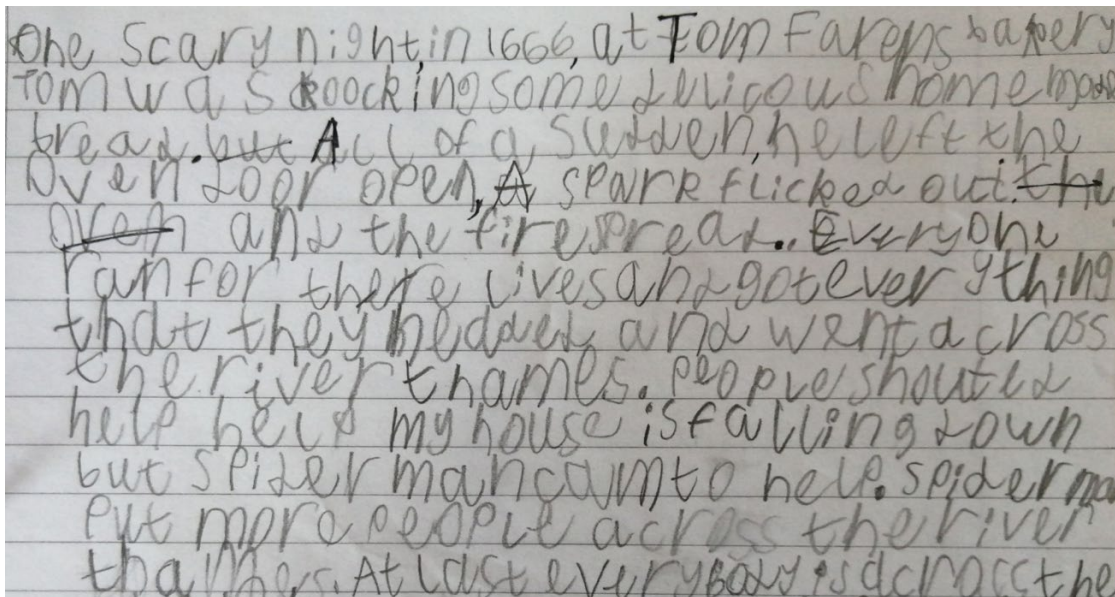 One scary night, in 1666, at Tom Farens bakery
Tom was coocking some delicous home made
bread. but All of a sudden, he left the
oven door open, A spark flicked out. the
oven and the fire spread.. Everyone
ran for there lives and got everything
that they hedded and went across
the river thames. People shouted
help help my house is falling down
but spider man cam to help. spider man
put more people across the river
thames. At last everybody is across the